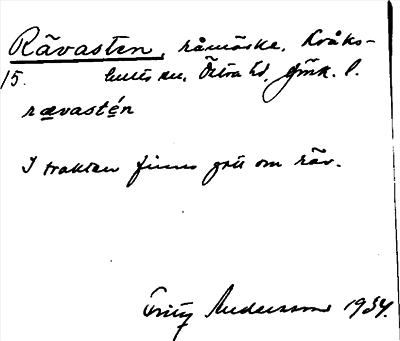 Rävasten, råmärke. Kråks-
15. hults sn, Östra hd, Jönk. l.
rævastén
I trakten finns gott om räv.
Fritz Andersson 1934.